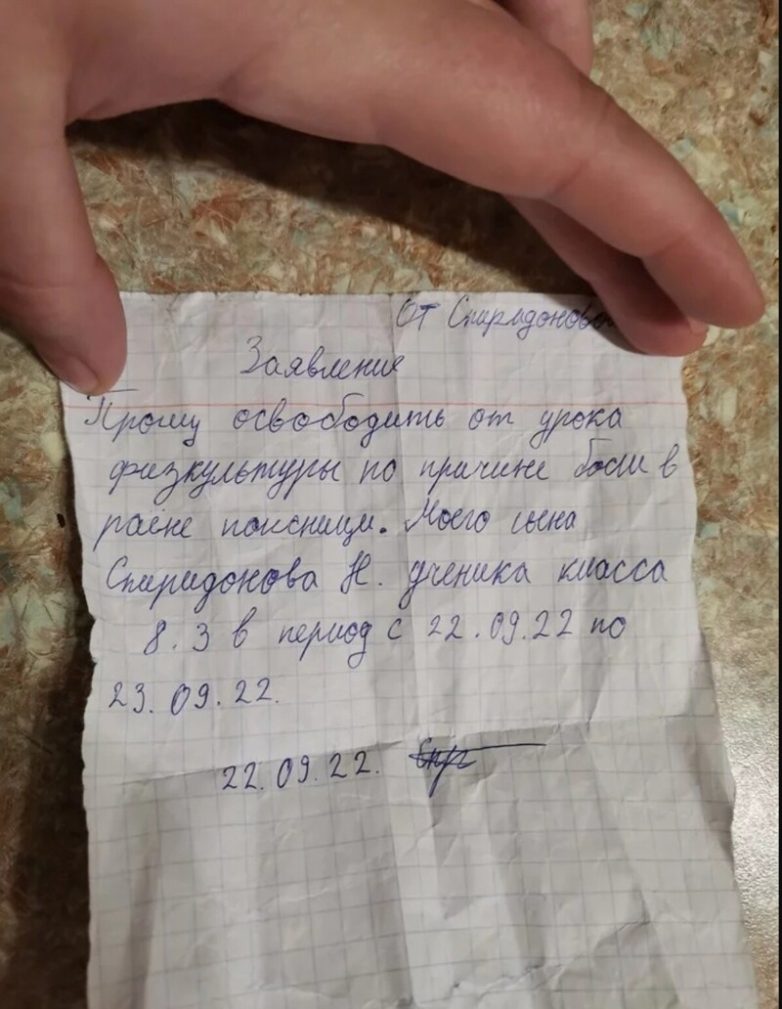 От Спиридоновой
Заявление
Прошу освободить от урока
физкультуры по причине боли в
раёне поясници. Моего сына
Спиридонова Н. ученика класса
8.3 в период с 22.09.22 по
23.09.22.
22.09.22.